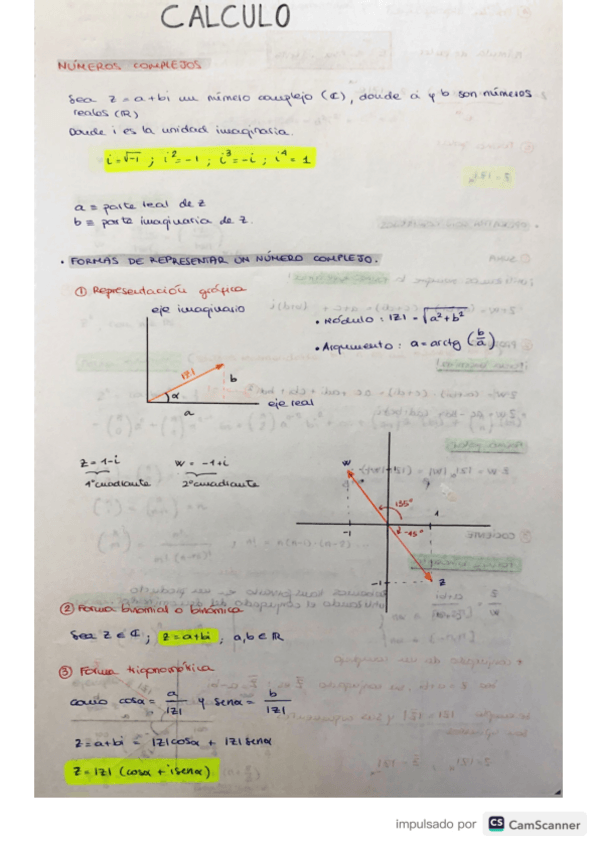 CALCULO
NÚMEROS COMPLEJOS
Sea z = a + bi un número complejo (ℂ), donde a y b son números
reales (ℝ)
Donde i es la unidad imaginaria.
i = √-1 ; i² = -1 ; i³ = -i ; i⁴ = 1
a ≡ parte real de z
b ≡ parte imaginaria de z.
• FORMAS DE REPRESENTAR UN NÚMERO COMPLEJO.
① Representación gráfica
eje imaginario
• Módulo : |z| = √a² + b²
• Argumento : α = arctg (b/a)
|z|
b
α
a
eje real
z = 1 - i
w = -1 + i
4º cuadrante
2º cuadrante
w
1
135°
-1
1
-45°
-1
z
② Forma binomial o binómica
Sea z ∈ ℂ ; z = a + bi ; a, b ∈ ℝ
③ Forma trigonométrica
como cosα = a/|z| y senα = b/|z|
z = a + bi = |z| cosα + |z| senα
z = |z| (cosα + i senα)
impulsado por CS CamScanner